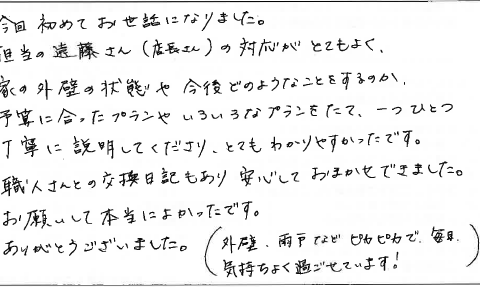 今回 初めて お世話になりました。
担当の遠藤さん(店長さん)の対応がとてもよく、
家の外壁の状態や今後どのようなことをするのか、
予算に合ったプランや いろいろなプランをたて、一つひとつ
丁寧に説明してくださり、とてもわかりやすかったです。
職人さんとの交換日記もあり 安心して おまかせできました。
お願いして本当によかったです。
ありがとうございました。
(外壁、雨戸など ピカピカで、毎日、
気持ちよく過ごせています!)